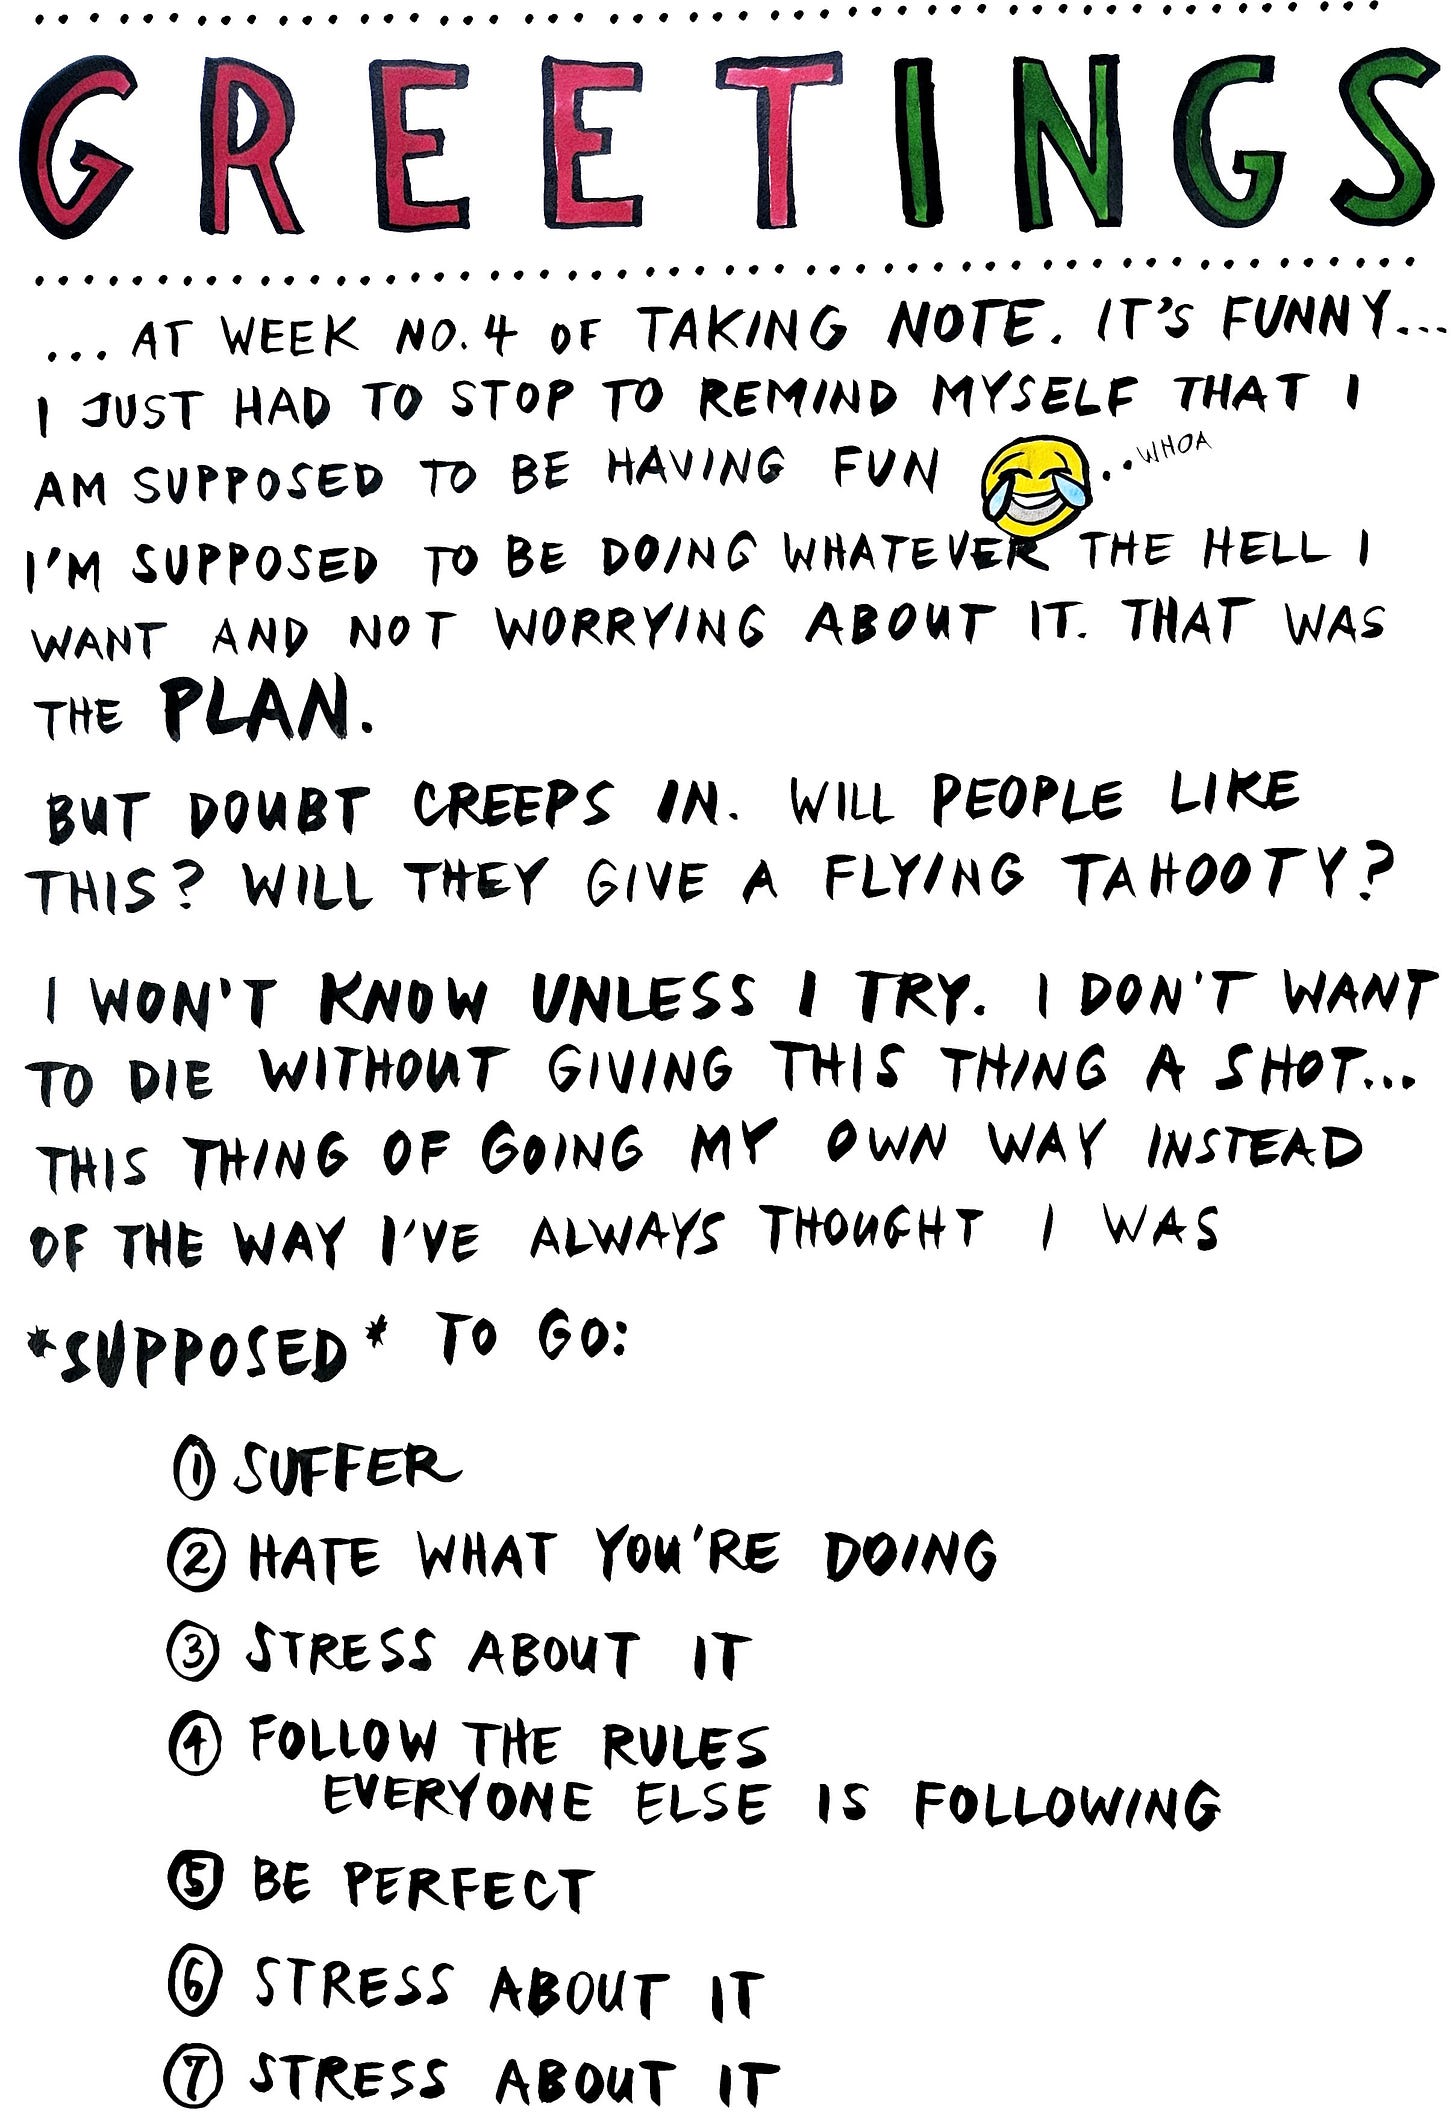 GREETINGS
... AT WEEK NO. 4 OF TAKING NOTE. IT'S FUNNY...
I JUST HAD TO STOP TO REMIND MYSELF THAT I
AM SUPPOSED TO BE HAVING FUN ..WHOA
I'M SUPPOSED TO BE DOING WHATEVER THE HELL I
WANT AND NOT WORRYING ABOUT IT. THAT WAS
THE PLAN.
BUT DOUBT CREEPS IN. WILL PEOPLE LIKE
THIS? WILL THEY GIVE A FLYING TAHOOTY?
I WON'T KNOW UNLESS I TRY. I DON'T WANT
TO DIE WITHOUT GIVING THIS THING A SHOT...
THIS THING OF GOING MY OWN WAY INSTEAD
OF THE WAY I'VE ALWAYS THOUGHT I WAS
*SUPPOSED* TO GO:
① SUFFER
② HATE WHAT YOU'RE DOING
③ STRESS ABOUT IT
④ FOLLOW THE RULES
EVERYONE ELSE IS FOLLOWING
⑤ BE PERFECT
⑥ STRESS ABOUT IT
⑦ STRESS ABOUT IT